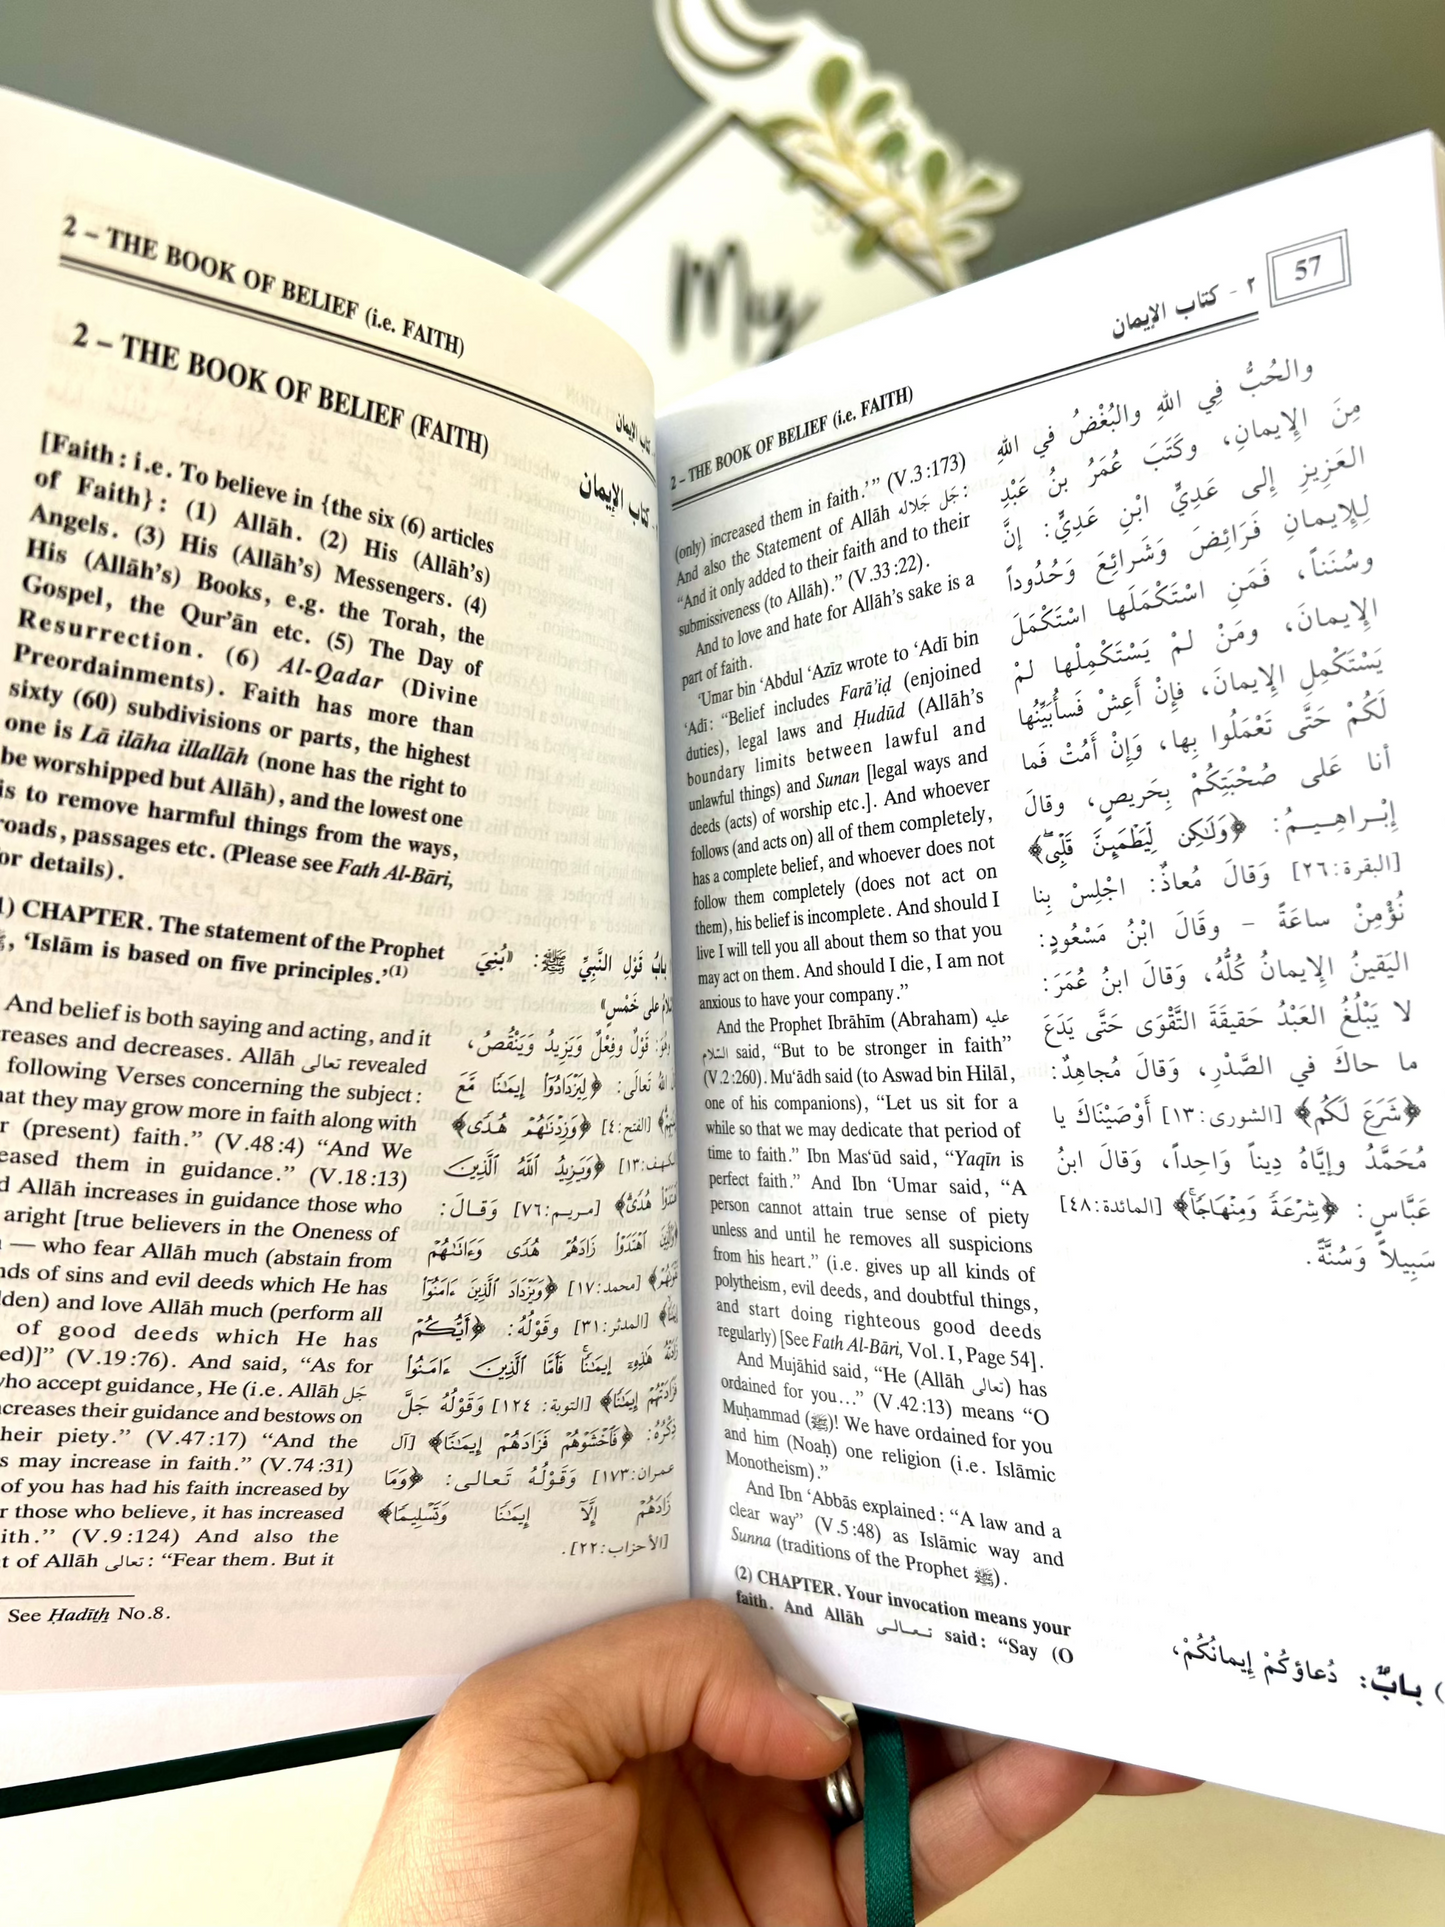 My
2 – THE BOOK OF BELIEF (i.e. FAITH)
كتاب الإيمان
2 – THE BOOK OF BELIEF (FAITH)
كتاب الإيمان
[Faith : i.e. To believe in {the six (6) articles
of Faith} : (1) Allāh. (2) His (Allāh’s)
Angels. (3) His (Allāh’s) Messengers. (4)
His (Allāh’s) Books, e.g. the Torah, the
Gospel, the Qur’ān etc. (5) The Day of
Resurrection. (6) Al-Qadar (Divine
Preordainments). Faith has more than
sixty (60) subdivisions or parts, the highest
one is Lā ilāha illallāh (none has the right to
be worshipped but Allāh), and the lowest one
is to remove harmful things from the ways,
roads, passages etc. (Please see Fath Al-Bāri,
for details).
1) CHAPTER. The statement of the Prophet
ﷺ, ‘Islām is based on five principles.’(1)
And belief is both saying and acting, and it
reases and decreases. Allāh تعالى revealed
following Verses concerning the subject :
hat they may grow more in faith along with
r (present) faith.” (V.48:4) “And We
eased them in guidance.” (V.18:13)
d Allāh increases in guidance those who
aright [true believers in the Oneness of
— who fear Allāh much (abstain from
nds of sins and evil deeds which He has
dden) and love Allāh much (perform all
of good deeds which He has
ed)]” (V.19:76). And said, “As for
who accept guidance, He (i.e. Allāh جل
ncreases their guidance and bestows on
heir piety.” (V.47:17) “And the
s may increase in faith.” (V.74:31)
of you has had his faith increased by
r those who believe, it has increased
ith.” (V.9:124) And also the
t of Allāh تعالى : “Fear them. But it
See Ḥadīth No.8.
بابُ قَوْلِ النَّبِيِّ ﷺ: «بُنِيَ
على خَمْسٍ»
قَوْلٌ وفِعْلٌ وَيَزِيدُ وَيَنْقُصُ،
اللهُ تَعَالَى: ﴿لِيَزْدَادُوٓا إِيمَٰنًا مَّعَ
[الفتح:٤] ﴿وَزِدْنَٰهُمْ هُدًى﴾
[الكهف:١٣] ﴿وَيَزِيدُ اللَّهُ الَّذِينَ
هُدًى﴾ [مريم:٧٦] وَقَالَ:
اهْتَدَوْا زَادَهُمْ هُدًى وَءَاتَىٰهُمْ
[محمد:١٧] ﴿وَيَزْدَادَ الَّذِينَ ءَامَنُوٓا
[المدثر:٣١] وقَوْلُهُ: ﴿أَيُّكُمْ
زَادَتْهُ هَٰذِهِۦٓ إِيمَٰنًا فَأَمَّا الَّذِينَ ءَامَنُوا
فَزَادَتْهُمْ إِيمَٰنًا﴾ [التوبة: ١٢٤] وَقَوْلُهُ جَلَّ
ذِكْرُهُ: ﴿فَاخْشَوْهُمْ فَزَادَهُمْ إِيمَٰنًا﴾ [آل
عمران:١٧٣] وَقَوْلُهُ تَعَالى: ﴿وَمَا
زَادَهُمْ إِلَّآ إِيمَٰنًا وَتَسْلِيمًا﴾
[الأحزاب:٢٢].
2 – THE BOOK OF BELIEF (i.e. FAITH)
٢ - كتاب الإيمان
57
(only) increased them in faith.’” (V.3:173)
And also the Statement of Allāh جَل جَلاله:
“And it only added to their faith and to their
submissiveness (to Allāh).” (V.33:22).
And to love and hate for Allāh’s sake is a
part of faith.
‘Umar bin ‘Abdul ‘Azīz wrote to ‘Adī bin
‘Adī: “Belief includes Farā’iḍ (enjoined
duties), legal laws and Ḥudūd (Allāh’s
boundary limits between lawful and
unlawful things) and Sunan [legal ways and
deeds (acts) of worship etc.]. And whoever
follows (and acts on) all of them completely,
has a complete belief, and whoever does not
follow them completely (does not act on
them), his belief is incomplete. And should I
live I will tell you all about them so that you
may act on them. And should I die, I am not
anxious to have your company.”
And the Prophet Ibrāhīm (Abraham) عليه
السلام said, “But to be stronger in faith”
(V.2:260). Mu‘ādh said (to Aswad bin Hilāl,
one of his companions), “Let us sit for a
while so that we may dedicate that period of
time to faith.” Ibn Mas‘ūd said, “Yaqīn is
perfect faith.” And Ibn ‘Umar said, “A
person cannot attain true sense of piety
unless and until he removes all suspicions
from his heart.” (i.e. gives up all kinds of
polytheism, evil deeds, and doubtful things,
and start doing righteous good deeds
regularly) [See Fath Al-Bāri, Vol. I, Page 54].
And Mujāhid said, “He (Allāh تعالى) has
ordained for you...” (V.42:13) means “O
Muḥammad (ﷺ)! We have ordained for you
and him (Noaḥ) one religion (i.e. Islāmic
Monotheism).”
And Ibn ‘Abbās explained: “A law and a
clear way” (V.5:48) as Islāmic way and
Sunna (traditions of the Prophet ﷺ).
(2) CHAPTER. Your invocation means your
faith. And Allāh تعالى said: “Say (O
والحُبُّ فِي اللهِ والبُغْضُ في اللهِ
مِنَ الإِيمانِ، وكَتَبَ عُمَرُ بنُ عَبْدِ
العَزِيزِ إلى عَدِيِّ ابْنِ عَدِيٍّ: إنَّ
لِلإِيمانِ فَرَائِضَ وَشَرائِعَ وَحُدُوداً
وسُنَناً، فَمَنِ اسْتَكْمَلَها اسْتَكْمَلَ
الإِيمانَ، ومَنْ لمْ يَسْتَكْمِلْها لمْ
يَسْتَكْمِلِ الإِيمانَ، فإنْ أَعِشْ فَسأُبَيِّنُها
لَكُمْ حَتَّى تَعْمَلُوا بِها، وَإِنْ أَمُتْ فَما
أنا عَلى صُحْبَتِكُمْ بِحَرِيصٍ، وقالَ
إبْراهِيمُ: ﴿وَلَٰكِن لِّيَطْمَئِنَّ قَلْبِى﴾
[البقرة:٢٦] وَقَالَ مُعاذٌ: اجْلِسْ بِنا
نُؤْمِنْ ساعَةً - وقَالَ ابْنُ مَسْعُودٍ:
اليَقِينُ الإِيمانُ كُلُّهُ، وَقَالَ ابنُ عُمَرَ:
لا يَبْلُغُ العَبْدُ حَقيقَةَ التَّقْوَى حَتَّى يَدَعَ
ما حاكَ في الصَّدْرِ، وَقَالَ مُجاهِدٌ:
﴿شَرَعَ لَكُم﴾ [الشورى:١٣] أَوْصَيْنَاكَ يا
مُحَمَّدُ وإيَّاهُ دِيناً وَاحِداً، وَقَالَ ابنُ
عَبَّاسٍ: ﴿شِرْعَةً وَمِنْهَاجًا﴾ [المائدة:٤٨]
سَبِيلاً وَسُنَّةً.
) بابٌ: دُعاؤكُمْ إِيمانُكُمْ،